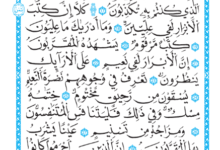 الَّذِى كُنتُم بِهِۦ تُكَذِّبُونَ ۝ كَلَّآ إِنَّ كِتَٰبَ
ٱلْأَبْرَارِ لَفِى عِلِّيِّينَ ۝ وَمَآ أَدْرَىٰكَ مَا عِلِّيُّونَ
۝ كِتَٰبٌ مَّرْقُومٌ ۝ يَشْهَدُهُ ٱلْمُقَرَّبُونَ
۝ إِنَّ ٱلْأَبْرَارَ لَفِى نَعِيمٍ ۝ عَلَى ٱلْأَرَآئِكِ
يَنظُرُونَ ۝ تَعْرِفُ فِى وُجُوهِهِمْ نَضْرَةَ ٱلنَّعِيمِ
۝ يُسْقَوْنَ مِن رَّحِيقٍ مَّخْتُومٍ ۝ خِتَٰمُهُۥ
مِسْكٌ وَفِى ذَٰلِكَ فَلْيَتَنَافَسِ ٱلْمُتَنَٰفِسُونَ
۝ وَمِزَاجُهُۥ مِن تَسْنِيمٍ ۝ عَيْنًا يَشْرَبُ